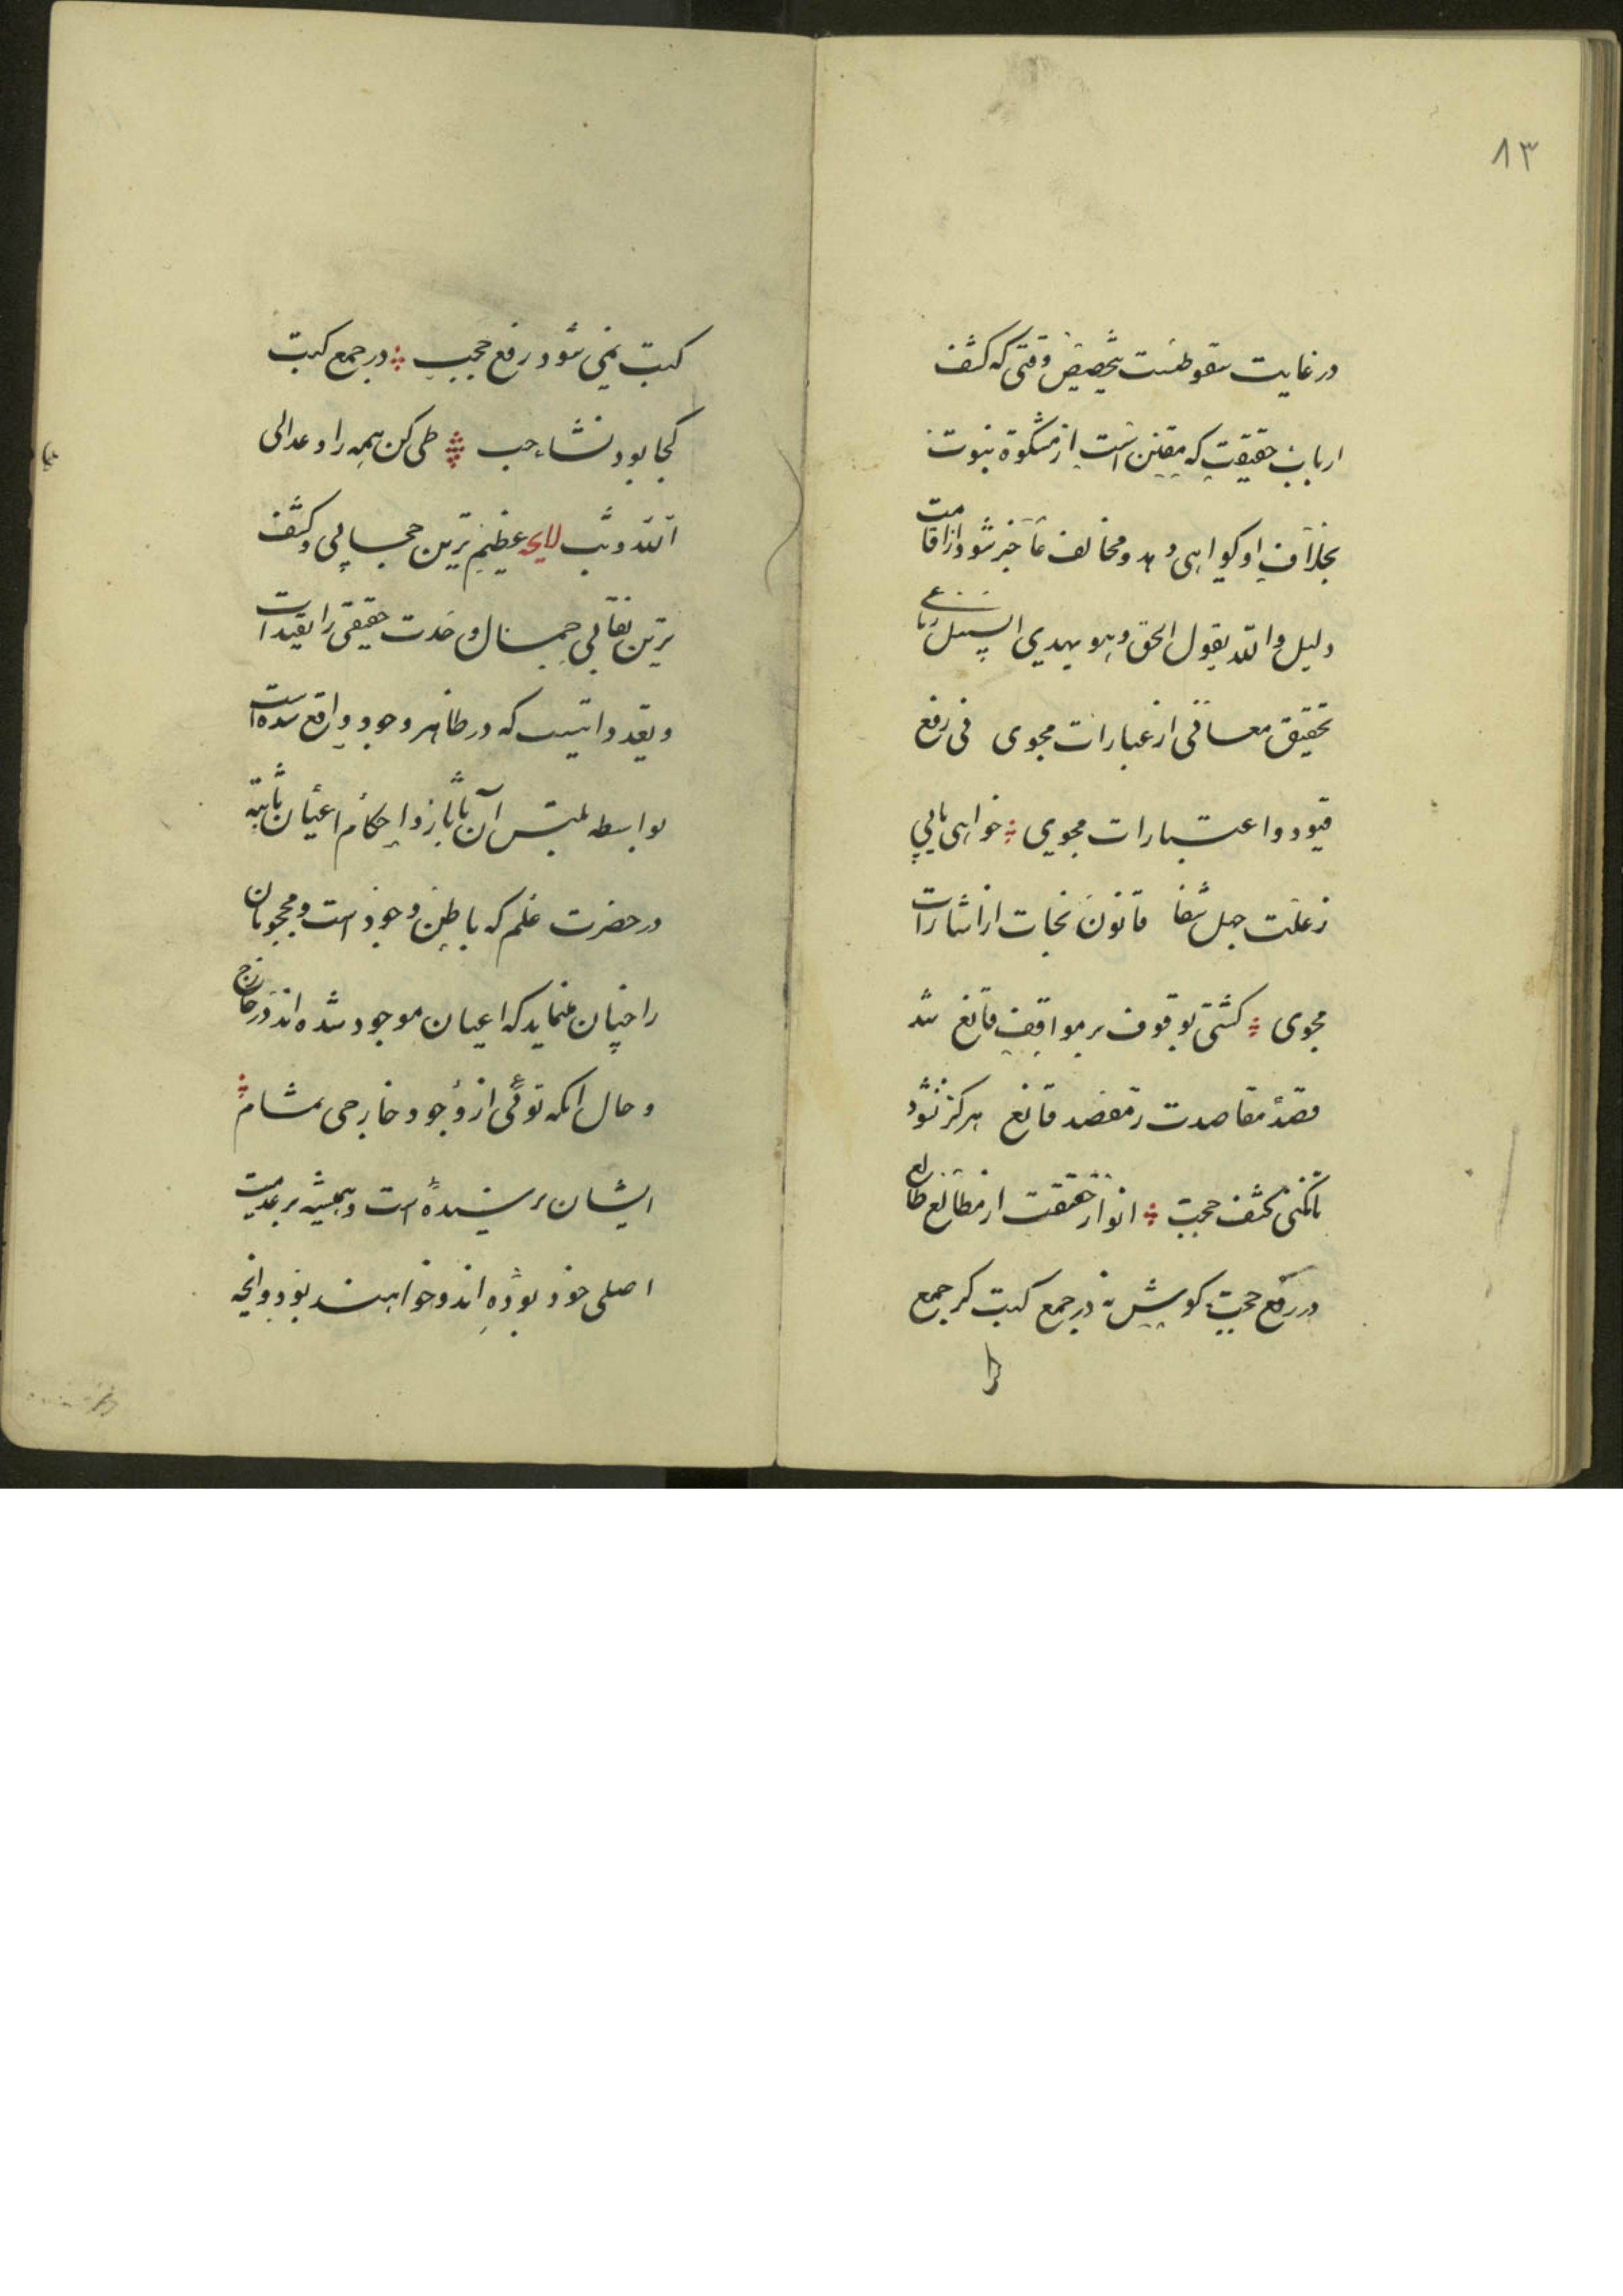 ۸۳
در غایت سقوطست بتخصیص وقتی که کشف
ارباب حقیقت که مقتبس است از مشکوة نبوت
بخلاف او کواهی دهد ومخالف عاجز شود از اقامت
دلیل والله یقول الحق وهو یهدی السبیل رباعی
تحقیق معانی از عبارات مجوی فی رفع
قیود واعتبارات مجوی خواهی یابی
ز علت جهل شفا قانون نجات از اشارات
مجوی کشتی بوقوف بر مواقف قانع شد
قصد مقاصدت ز مقصد قانع هرکز نشود
تا نکنی کشف حجب انوار حقیقت از مطالع طالع
در رفع حجب کوش نه در جمع کتب کز جمع
کتب نمی شود رفع حجب در جمع کتب
کجا بود نشاء حب طی کن همه را وعد الی
الله وتب لایحه عظیم ترین حجابی وکثیف
ترین نقابی جمال وحدت حقیقی را تقیدات
وتعدداتیست که در ظاهر وجود واقع شده است
بواسطه تلبس آن باثار واحکام اعیان ثابته
در حضرت علم که باطن وجود است ومحجوبان
را چنان مینماید که اعیان موجود شده اند در خارج
وحال انکه بوئی از وجود خارجی بمشام
ایشان نرسیده است وهمیشه بر عدمیت
اصلی خود بوده اند وخواهند بود وانچه